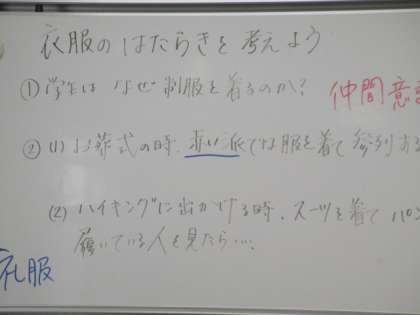 衣服のはたらきを考えよう
①学生は なぜ制服を着るのか?
仲間意
②(1)お葬式の時、赤い派でな服を着て参列する
(2)ハイキングに出かける時、スーツを着て パン
履いている人を見たら….
礼服